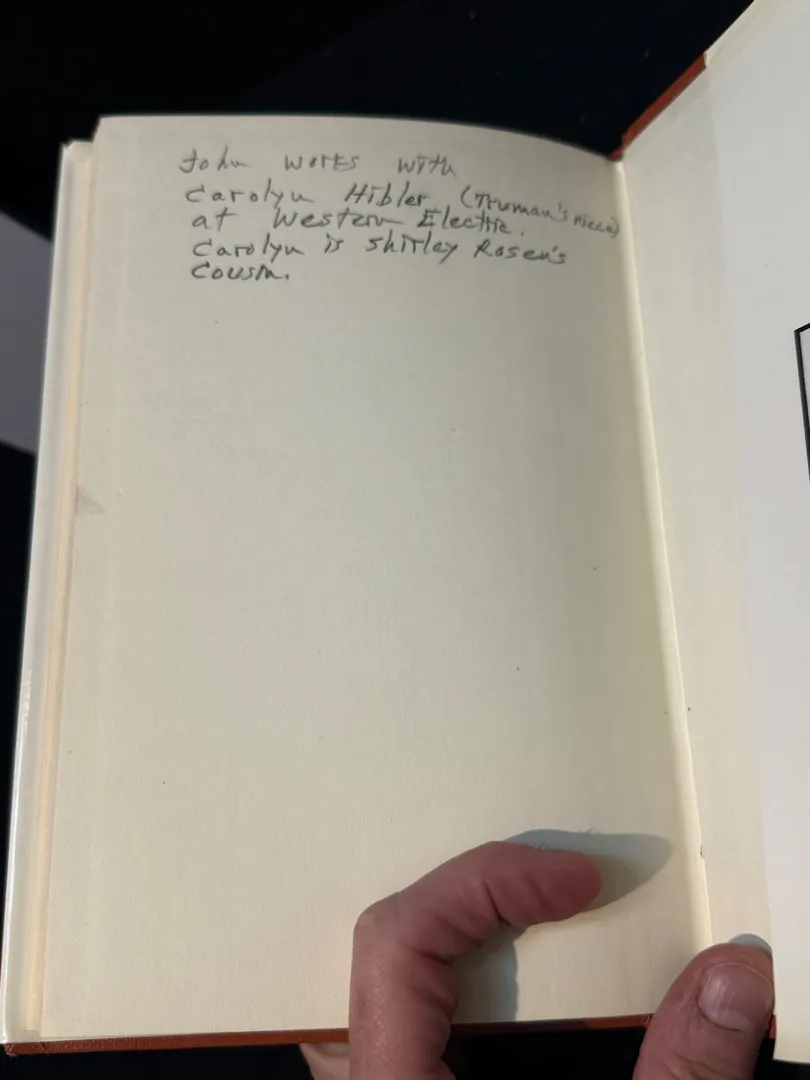 John works with
Carolyn Hibler (Truman's niece)
at Western Electric.
Carolyn is Shirley Rosen's
Cousin.